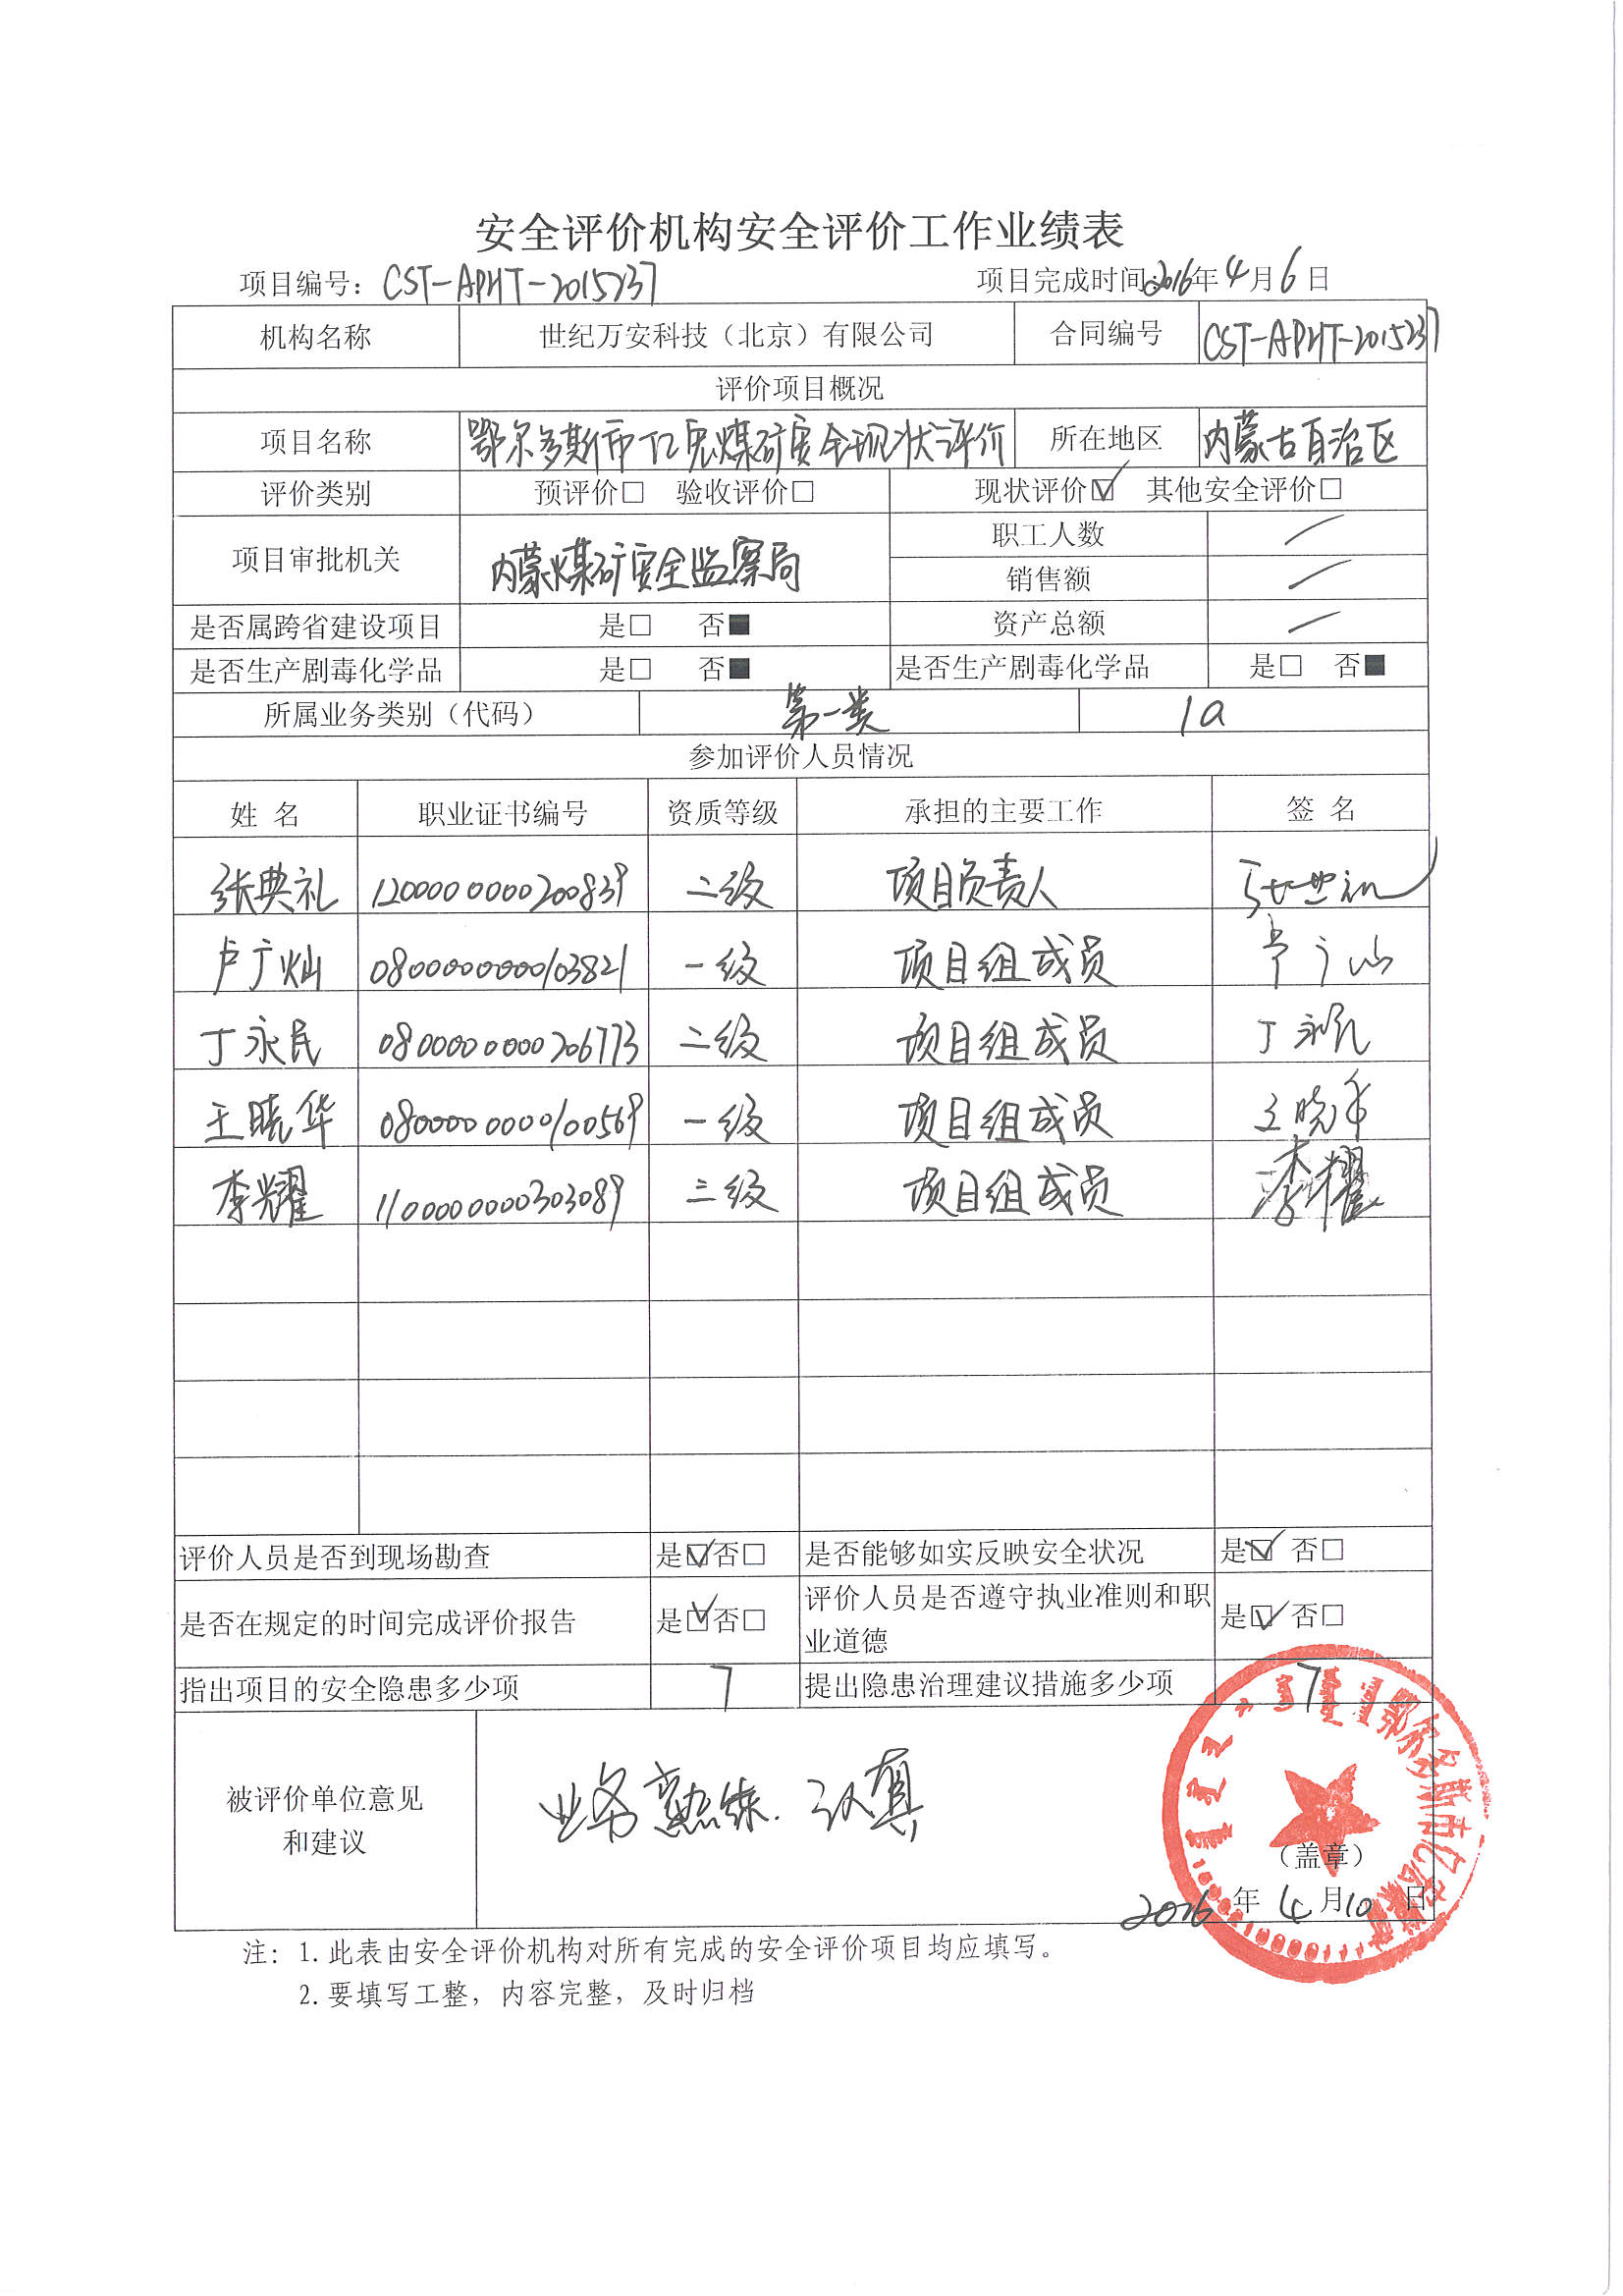 安全评价机构安全评价工作业绩表
项目编号：CST-APHT-2015237 项目完成时间：2016年4月6日
机构名称 世纪万安科技（北京）有限公司 合同编号 CST-APHT-2015237
评价项目概况
项目名称 鄂尔多斯市亿安煤矿安全现状评价 所在地区 内蒙古自治区
评价类别 预评价□ 验收评价□ 现状评价☑ 其他安全评价□
项目审批机关 内蒙煤矿安全监察局 职工人数 /
销售额 /
是否属跨省建设项目 是□ 否■ 资产总额 /
是否生产剧毒化学品 是□ 否■ 是否生产剧毒化学品 是□ 否■
所属业务类别（代码） 第一类 1a
参加评价人员情况
姓 名 职业证书编号 资质等级 承担的主要工作 签 名
张典礼 1200000000200839 二级 项目负责人 张典礼
卢广灿 0800000000103821 一级 项目组成员 卢广灿
丁永民 0800000000206773 二级 项目组成员 丁永民
王晓华 0800000000100569 一级 项目组成员 王晓华
李耀 1100000000303089 三级 项目组成员 李耀
评价人员是否到现场勘查 是☑否□ 是否能够如实反映安全状况 是☑ 否□
是否在规定的时间完成评价报告 是☑否□ 评价人员是否遵守执业准则和职业道德 是☑ 否□
指出项目的安全隐患多少项 7 提出隐患治理建议措施多少项 7
被评价单位意见
和建议
业务熟练.认真
（盖章）
2016年4月10日
注：1.此表由安全评价机构对所有完成的安全评价项目均应填写。
2.要填写工整，内容完整，及时归档